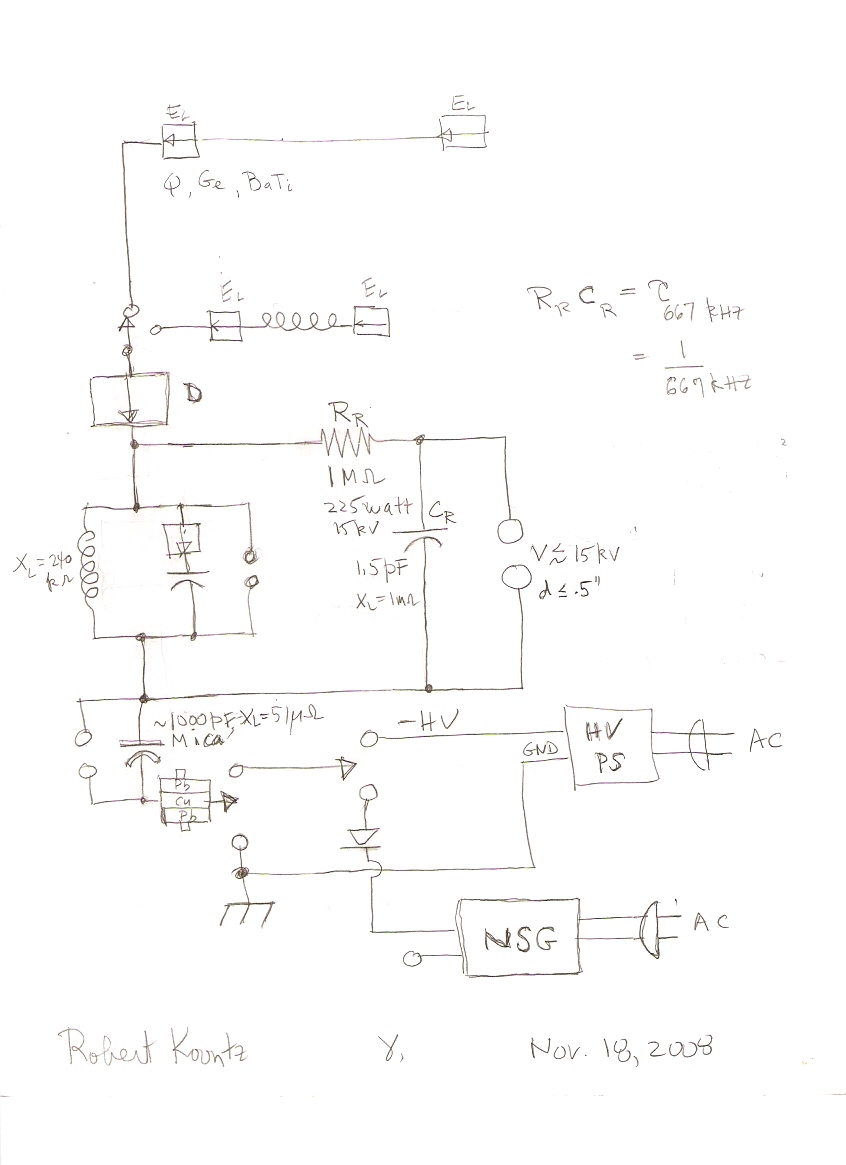 EL
EL
Q, Ge, BaTi
EL
EL
RR CR = τ 667 kHz
= 1
667 kHz
D
RR
1 MΩ
225 watt
15 kV
CR
1.5 pF
XL = 1mΩ
V ≲ 15 kV
d ≤ .5"
XL = 240
kΩ
~1000 pF, XL = 51μΩ
Mica
-HV
GND
HV
PS
AC
Pb
Cu
Pb
NSG
AC
Robert Koontz
Nov. 18, 2008